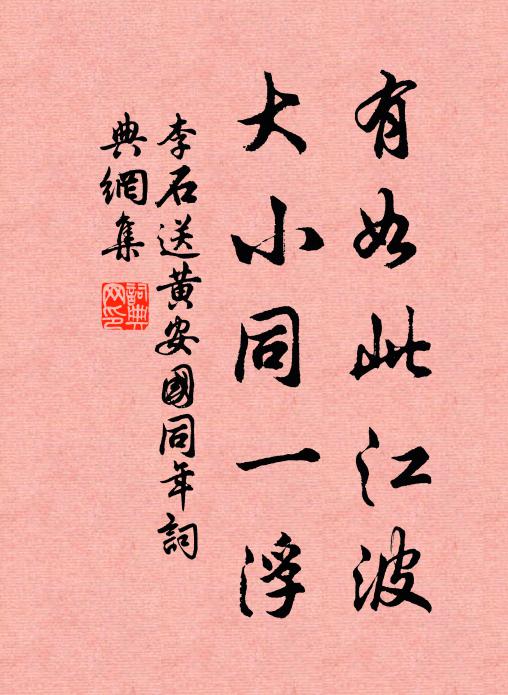 有如此江波
大小同一浮
李石送黄安國同年詞
典網集
詞典
网印